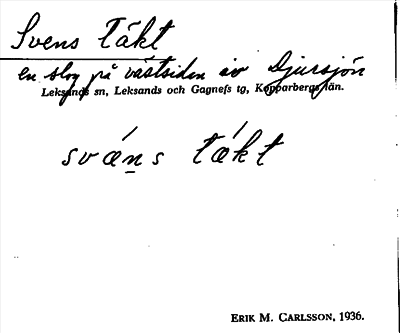 Svens täkt
en slog på västsidan av Djursjön
Leksands sn, Leksands och Gagnefs tg, Kopparbergs län.
svǽn̲s tǽkt
ERIK M. CARLSSON, 1936.